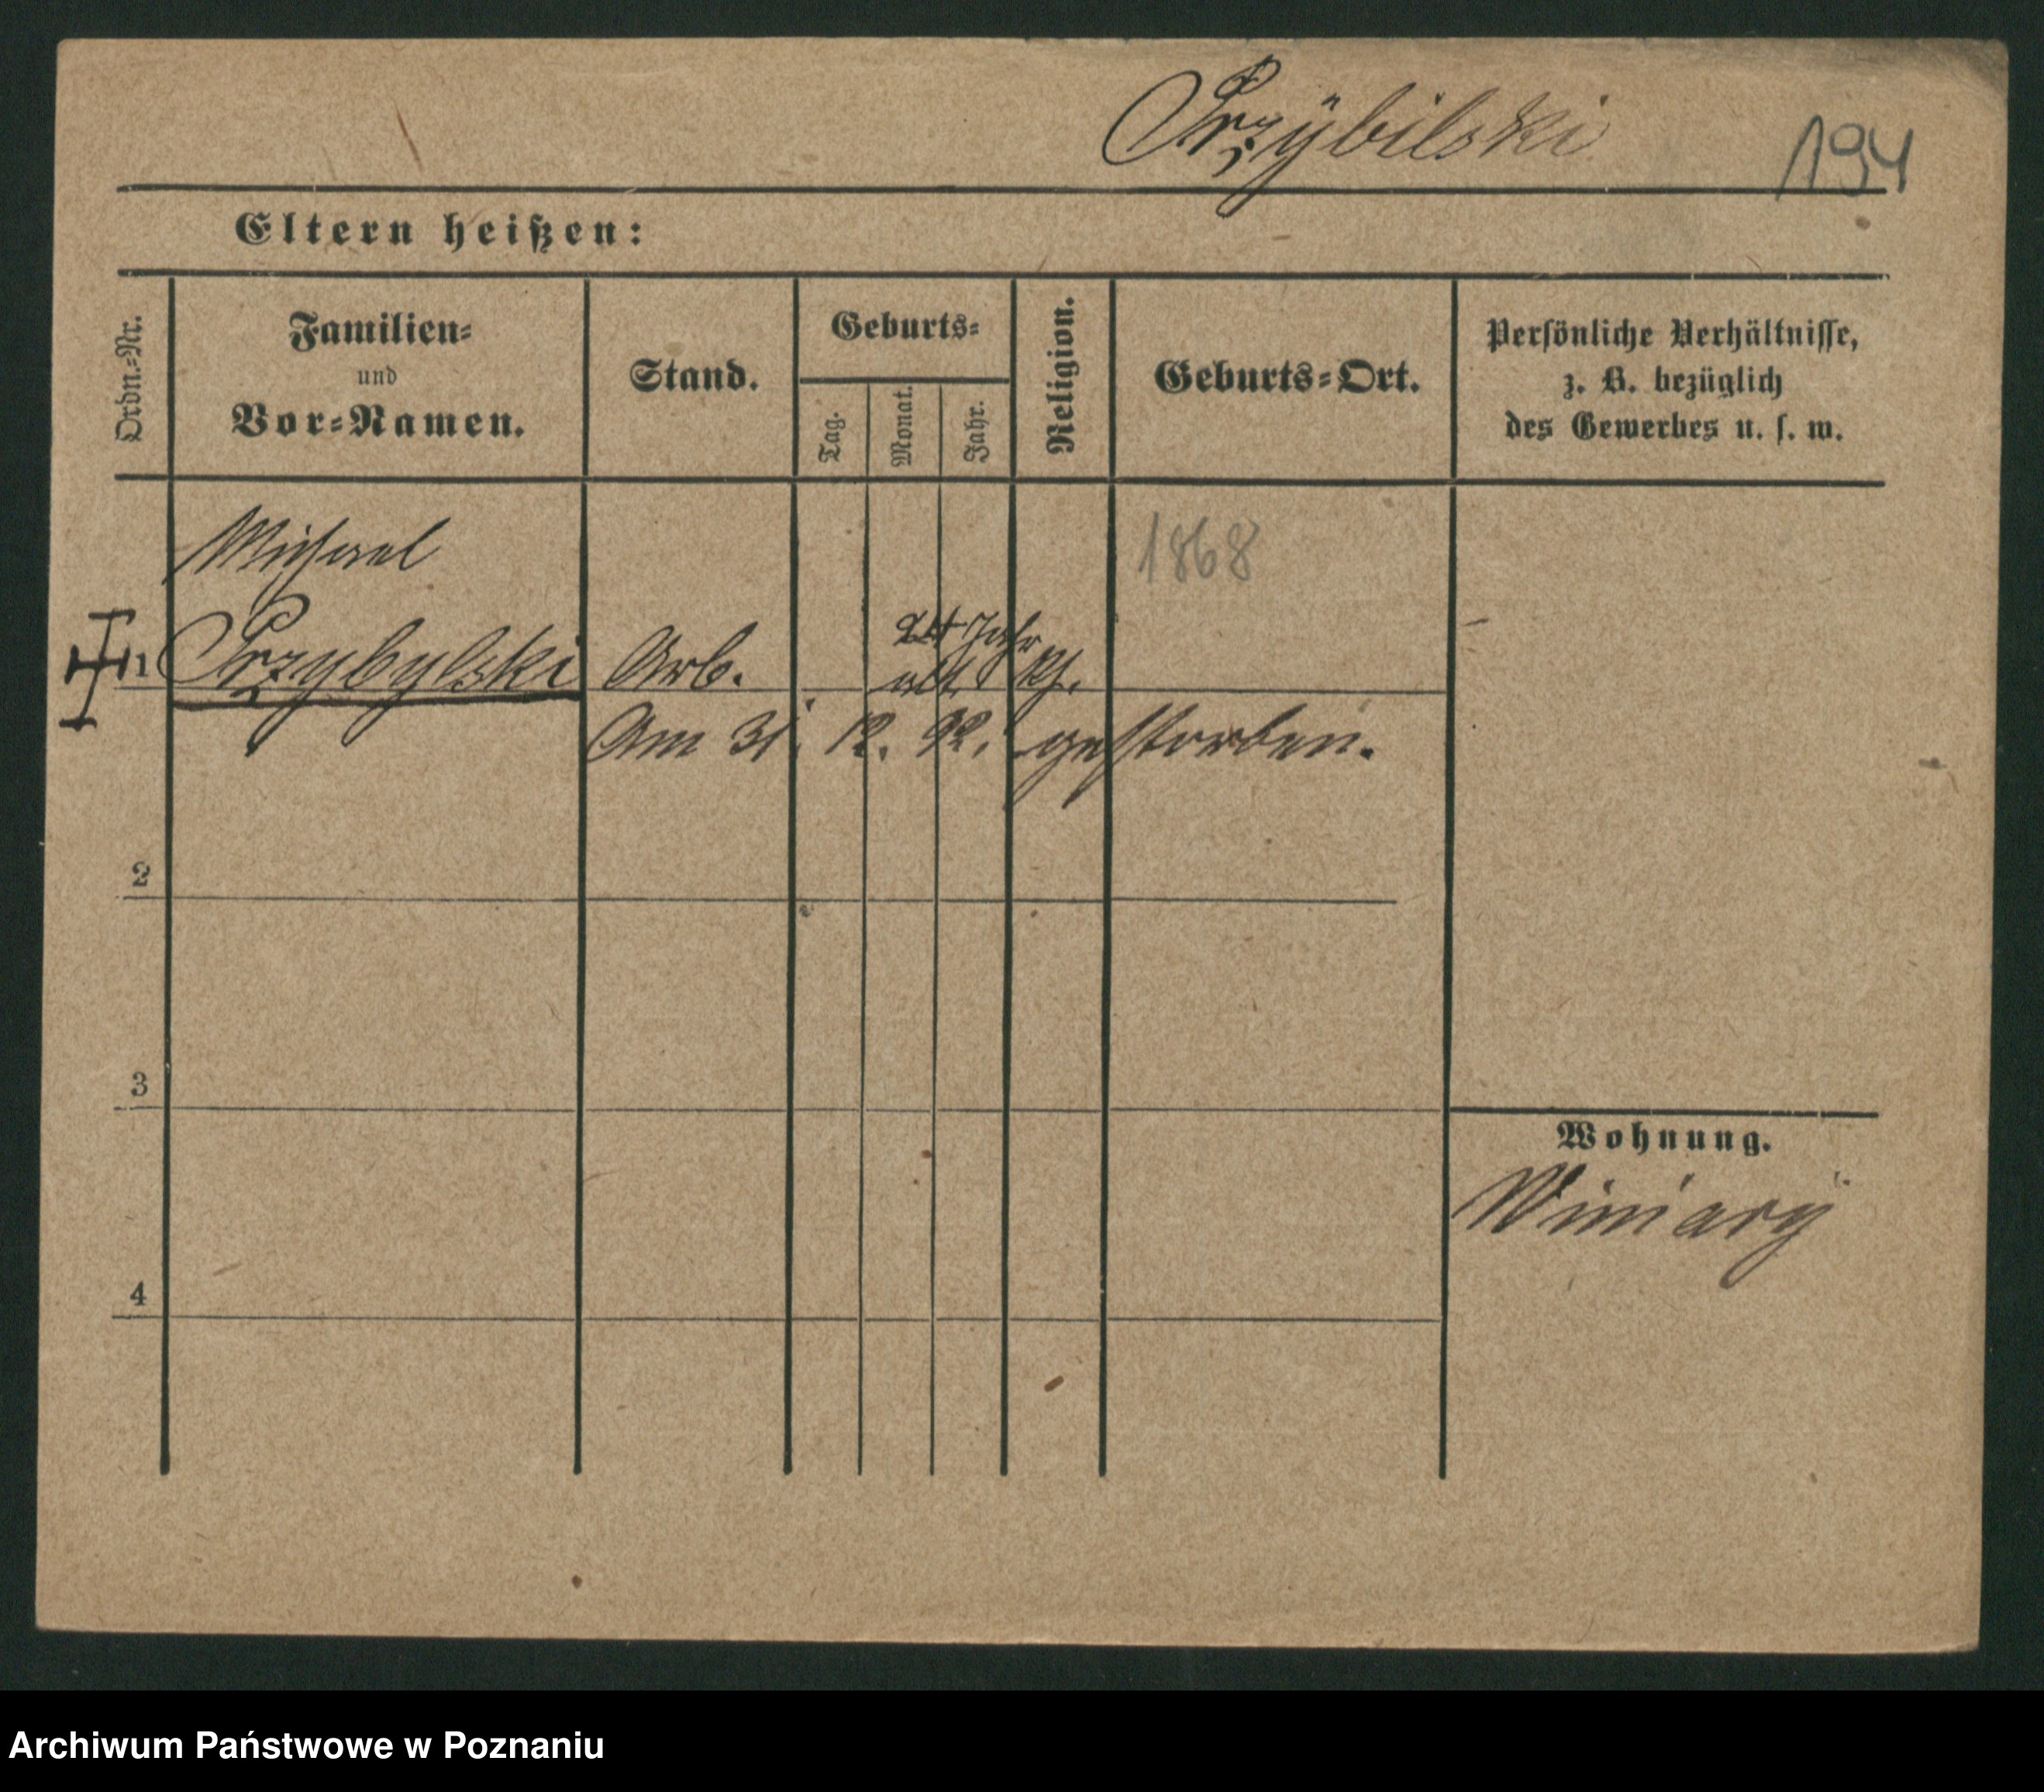 Przÿbilski
194
Eltern heißen:
Ordn.-Nr.
Familien-
und
Vor-Namen.
Stand.
Geburts-
Tag.
Monat.
Jahr.
Religion.
Geburts-Ort.
Persönliche Verhältnisse,
z. B. bezüglich
des Gewerbes u. s. w.
Michael
1868
1 Przybylski Arb. 24 Jahr
alt
Am 31. 12. 92. gestorben.
2
3
Wohnung.
Winiary
4
Archiwum Państwowe w Poznaniu